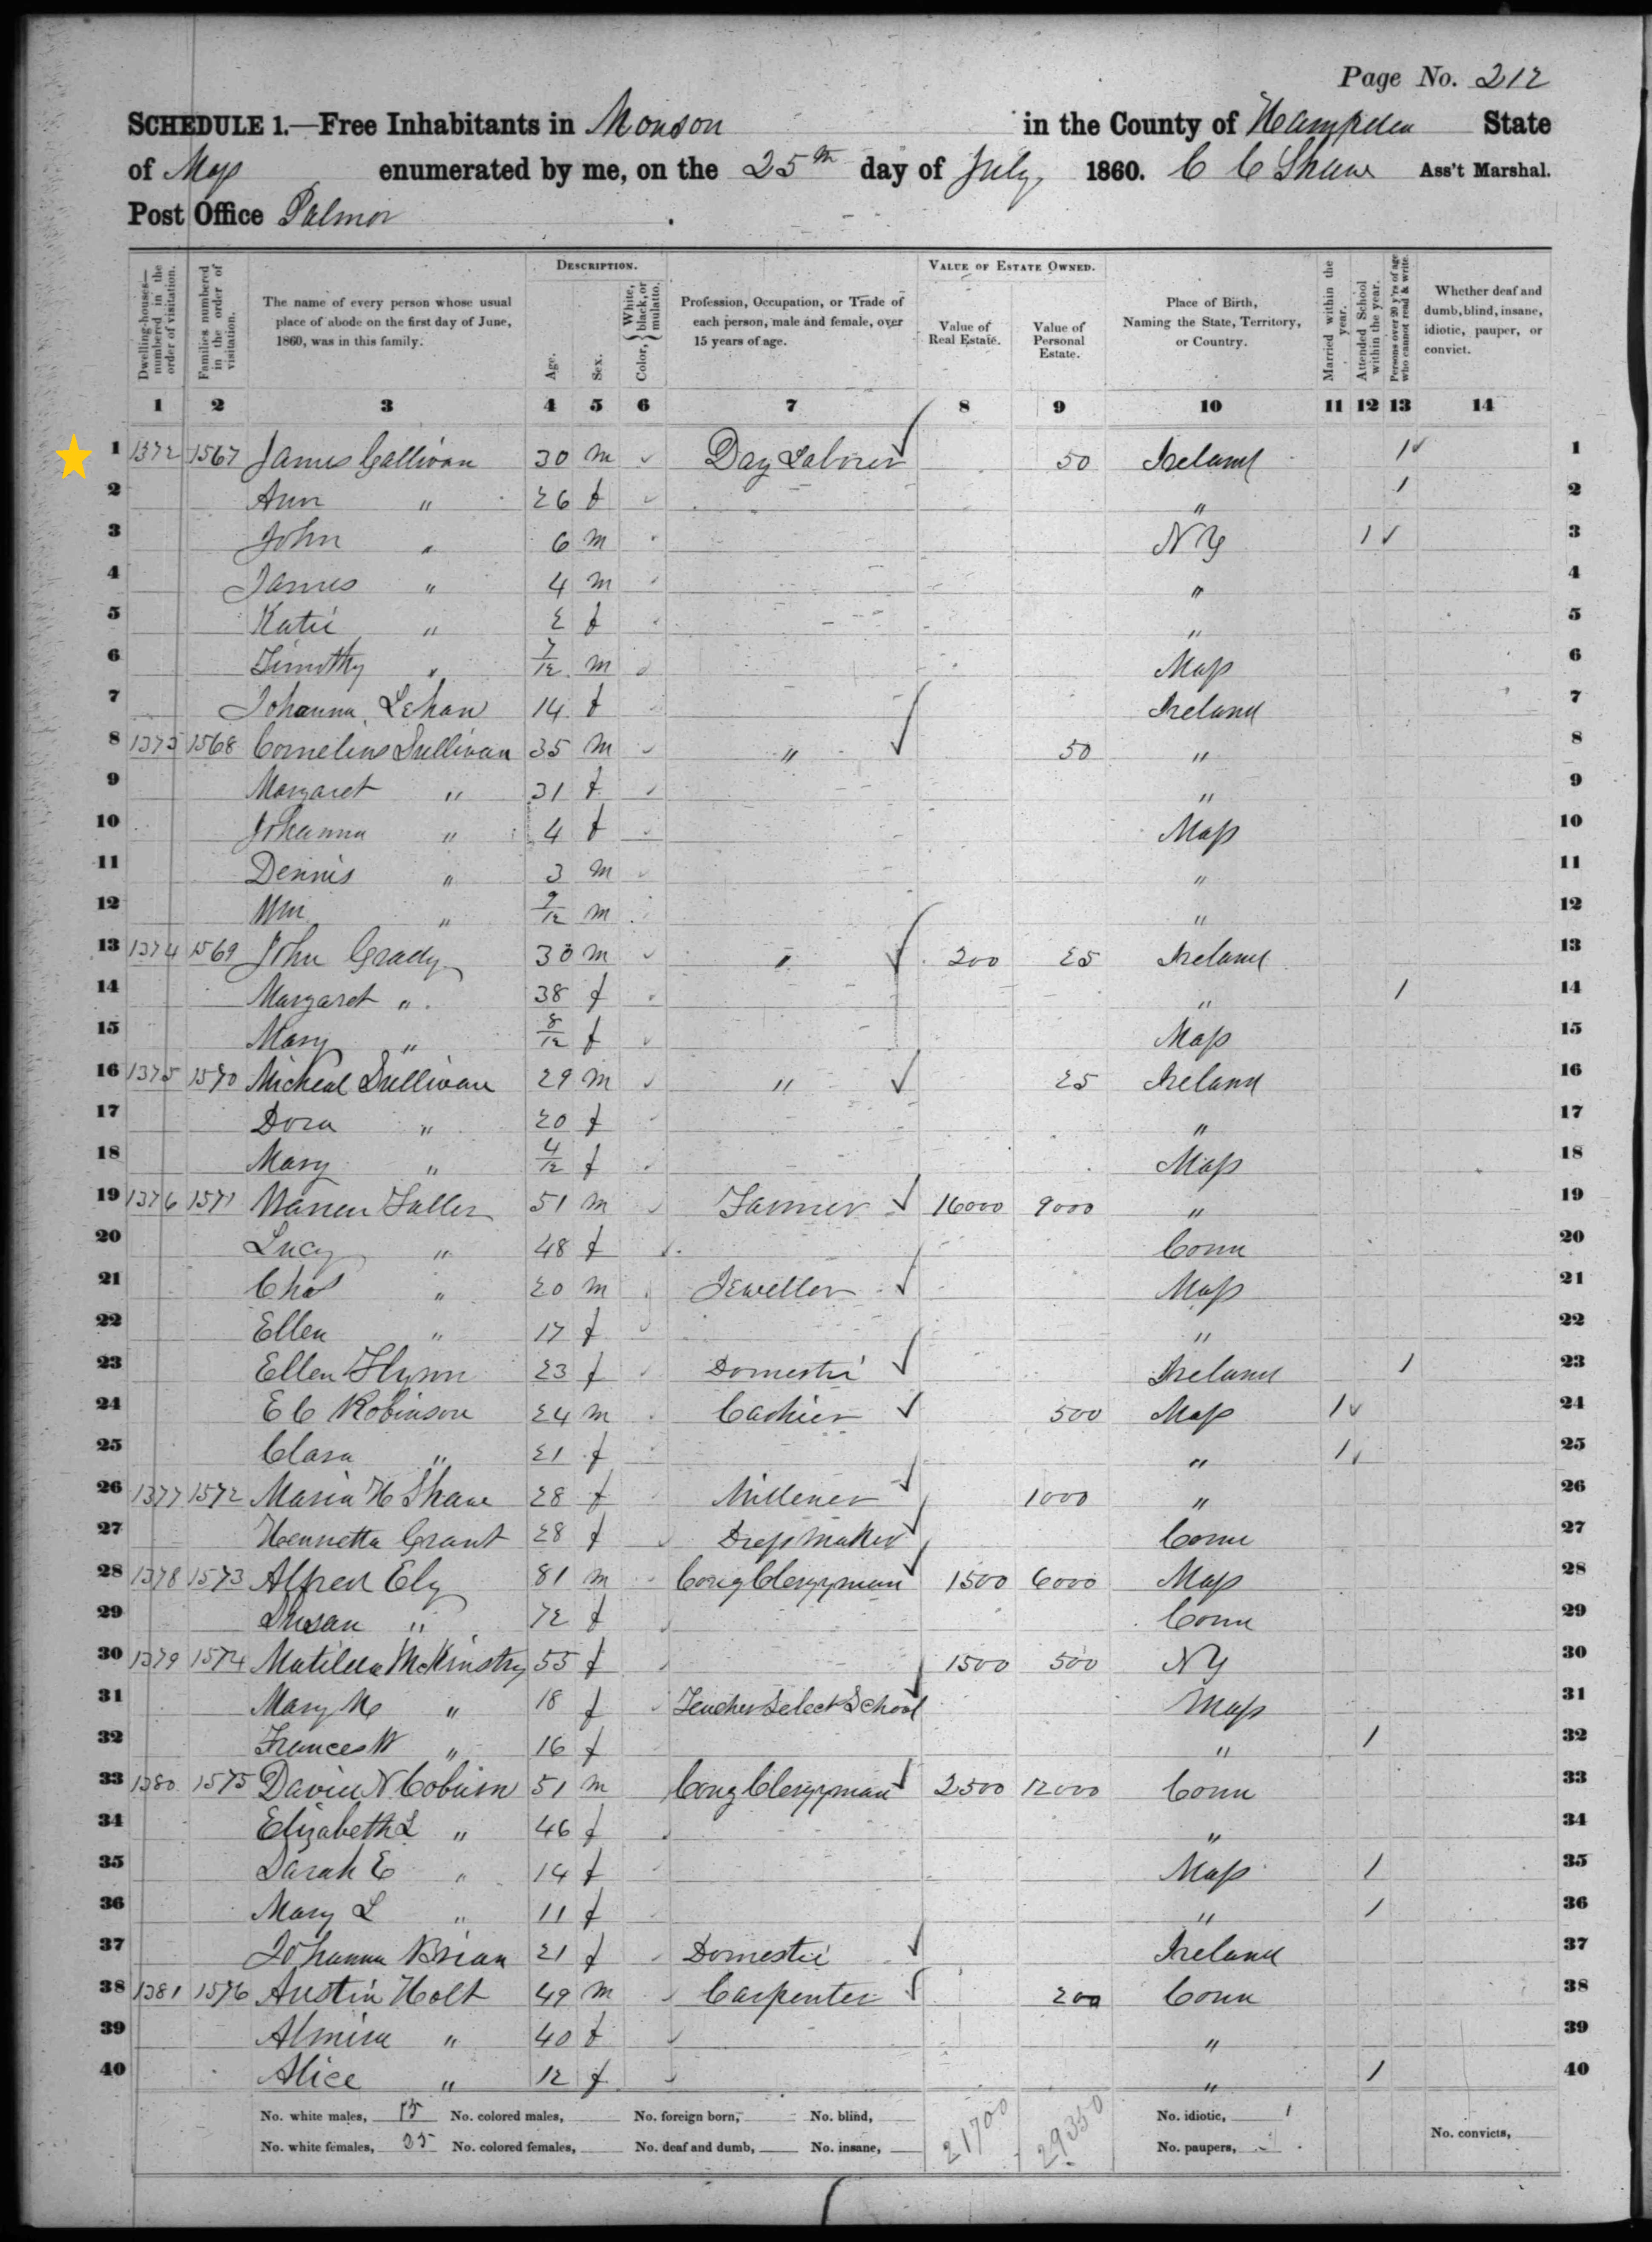 Page No. 212
SCHEDULE 1.—Free Inhabitants in Monson in the County of Hampden State
of Mass enumerated by me, on the 25th day of July, 1860. C C Shaw Ass't Marshal.
Post Office Palmer
Dwelling-houses—numbered in the order of visitation. Families numbered in the order of visitation. The name of every person whose usual place of abode on the first day of June, 1860, was in this family. DESCRIPTION. Age. Sex. Color, White, black, or mulatto. Profession, Occupation, or Trade of each person, male and female, over 15 years of age. VALUE OF ESTATE OWNED. Value of Real Estate. Value of Personal Estate. Place of Birth, Naming the State, Territory, or Country. Married within the year. Attended School within the year. Persons over 20 y'rs of age who cannot read & write. Whether deaf and dumb, blind, insane, idiotic, pauper, or convict.
1 2 3 4 5 6 7 8 9 10 11 12 13 14
1 1372 1567 James Gallivan 30 m Day Laborer 50 Ireland 1 1
2 Ann " 26 f " 1 2
3 John " 6 m N Y 1 3
4 James " 4 m " 4
5 Katie " 2 f " 5
6 Timothy " 7/12 m Mass 6
7 Johanna Lehan 14 f Ireland 7
8 1373 1568 Cornelius Sullivan 35 m " 50 " 8
9 Margaret " 31 f " 9
10 Johanna " 4 f Mass 10
11 Dennis " 3 m " 11
12 Wm " 9/12 m " 12
13 1374 1569 John Grady 30 m " 200 25 Ireland 13
14 Margaret " 38 f " 1 14
15 Mary " 8/12 f Mass 15
16 1375 1570 Micheal Sullivan 29 m " 25 Ireland 16
17 Dora " 20 f " 17
18 Mary " 4/12 f Mass 18
19 1376 1571 Warren Fuller 51 m Farmer 16000 9000 " 19
20 Lucy " 48 f Conn 20
21 Chas " 20 m Jeweller Mass 21
22 Ellen " 17 f " 22
23 Ellen Flynn 23 f Domestic Ireland 1 23
24 E C Robinson 24 m Cashier 500 Mass 1 24
25 Clara " 21 f " 1 25
26 1377 1572 Maria H Shaw 28 f Millener 1000 " 26
27 Henrietta Grant 28 f Dress Maker Conn 27
28 1378 1573 Alfred Ely 81 m Cong Clergyman 1500 6000 Mass 28
29 Susan " 72 f Conn 29
30 1379 1574 Matilda McKinstry 55 f 1500 500 N Y 30
31 Mary " 18 f Teacher Select School Mass 31
32 Frances W " 16 f " 1 32
33 1380 1575 David N Coburn 51 m Cong Clergyman 2500 12000 Conn 33
34 Elizabeth L " 46 f " 34
35 Sarah E " 14 f Mass 1 35
36 Mary L " 11 f " 1 36
37 Johanna Brian 21 f Domestic Ireland 37
38 1381 1576 Austin Holt 49 m Carpenter 200 Conn 38
39 Almira " 40 f " 39
40 Alice " 12 f " 1 40
No. white males, 15 No. colored males, No. foreign born, No. blind, 21700 29350 No. idiotic,
No. white females, 25 No. colored females, No. deaf and dumb, No. insane, No. paupers, No. convicts,